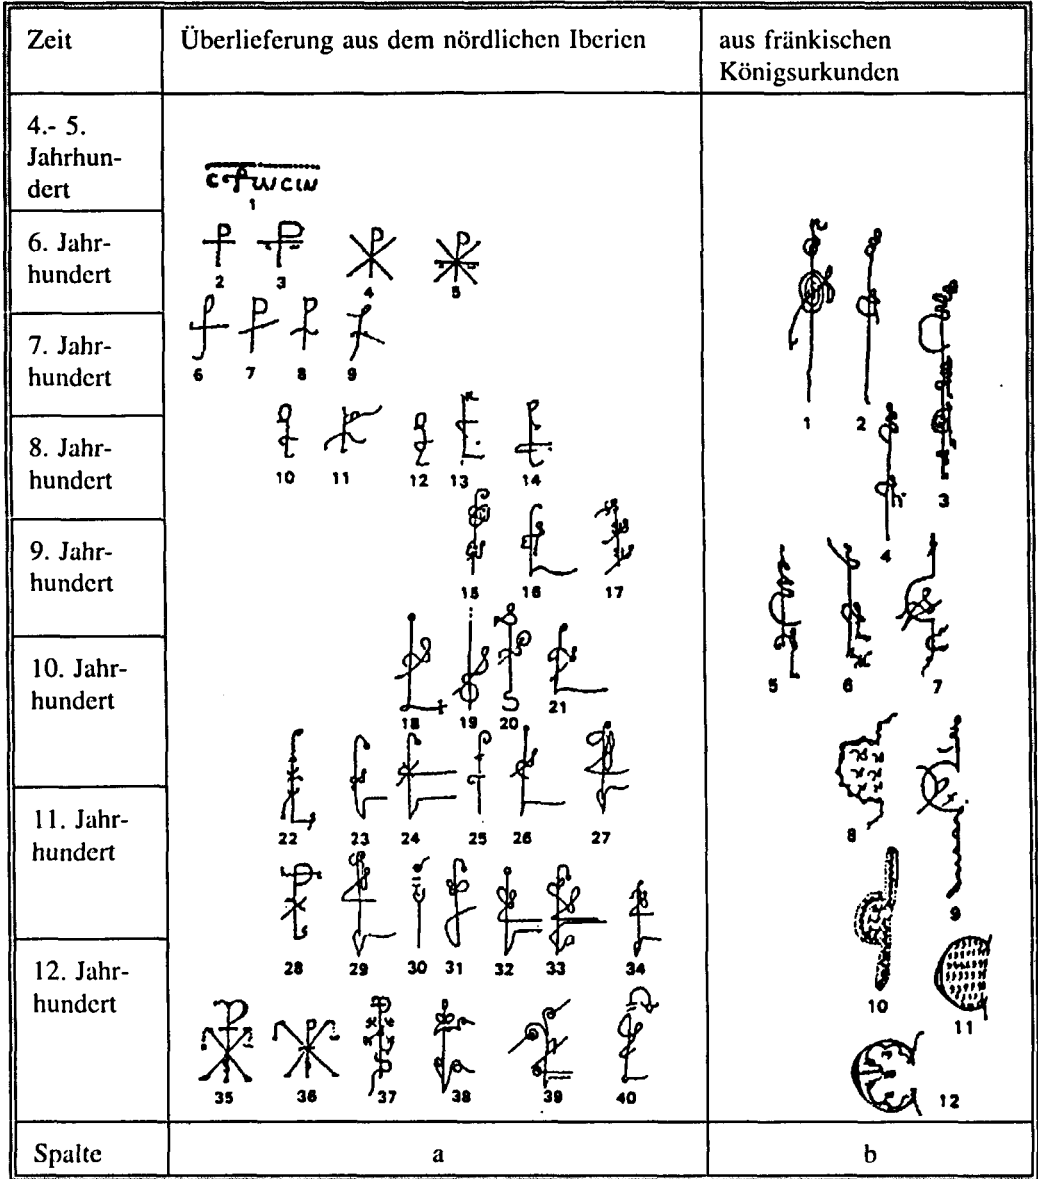 Zeit
Überlieferung aus dem nördlichen Iberien
aus fränkischen
Königsurkunden
4.- 5.
Jahrhun-
dert
1
6. Jahr-
hundert
2 3 4 5
7. Jahr-
hundert
6 7 8 9
1 2
8. Jahr-
hundert
10 11 12 13 14
3
4
9. Jahr-
hundert
15 16 17
5 6 7
10. Jahr-
hundert
18 19 20 21
22 23 24 25 26 27
8
11. Jahr-
hundert
9
28 29 30 31 32 33 34
10
11
12. Jahr-
hundert
35 36 37 38 39 40
12
Spalte
a
b